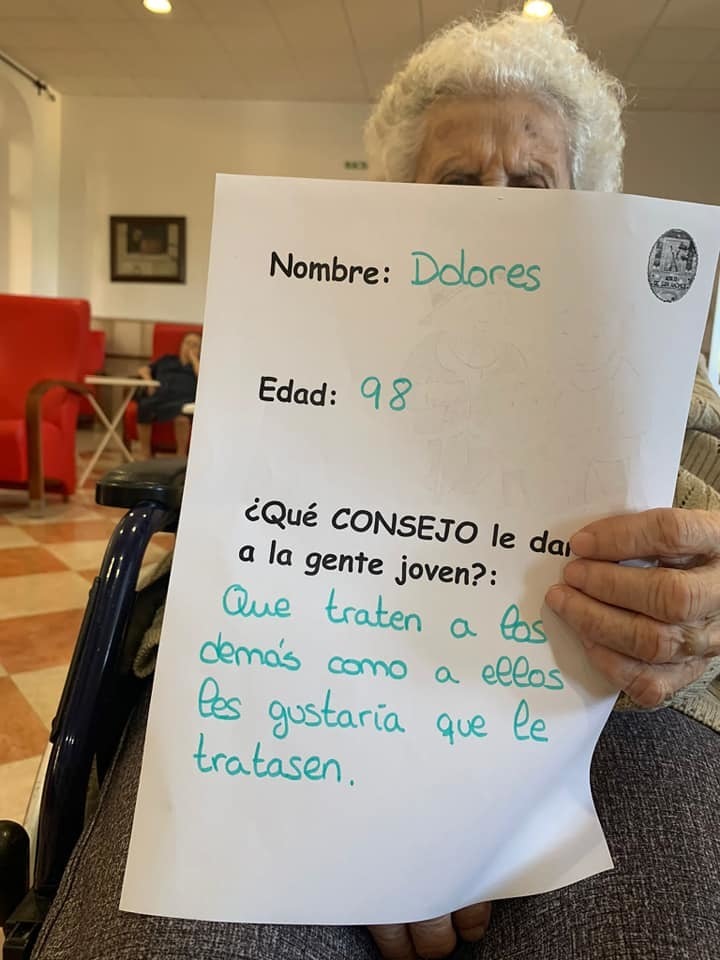 Nombre: Dolores
Edad: 98
¿Qué CONSEJO le
a la gente joven?:
Que traten a los
demás como a ellos
les gustaría que le
tratasen.